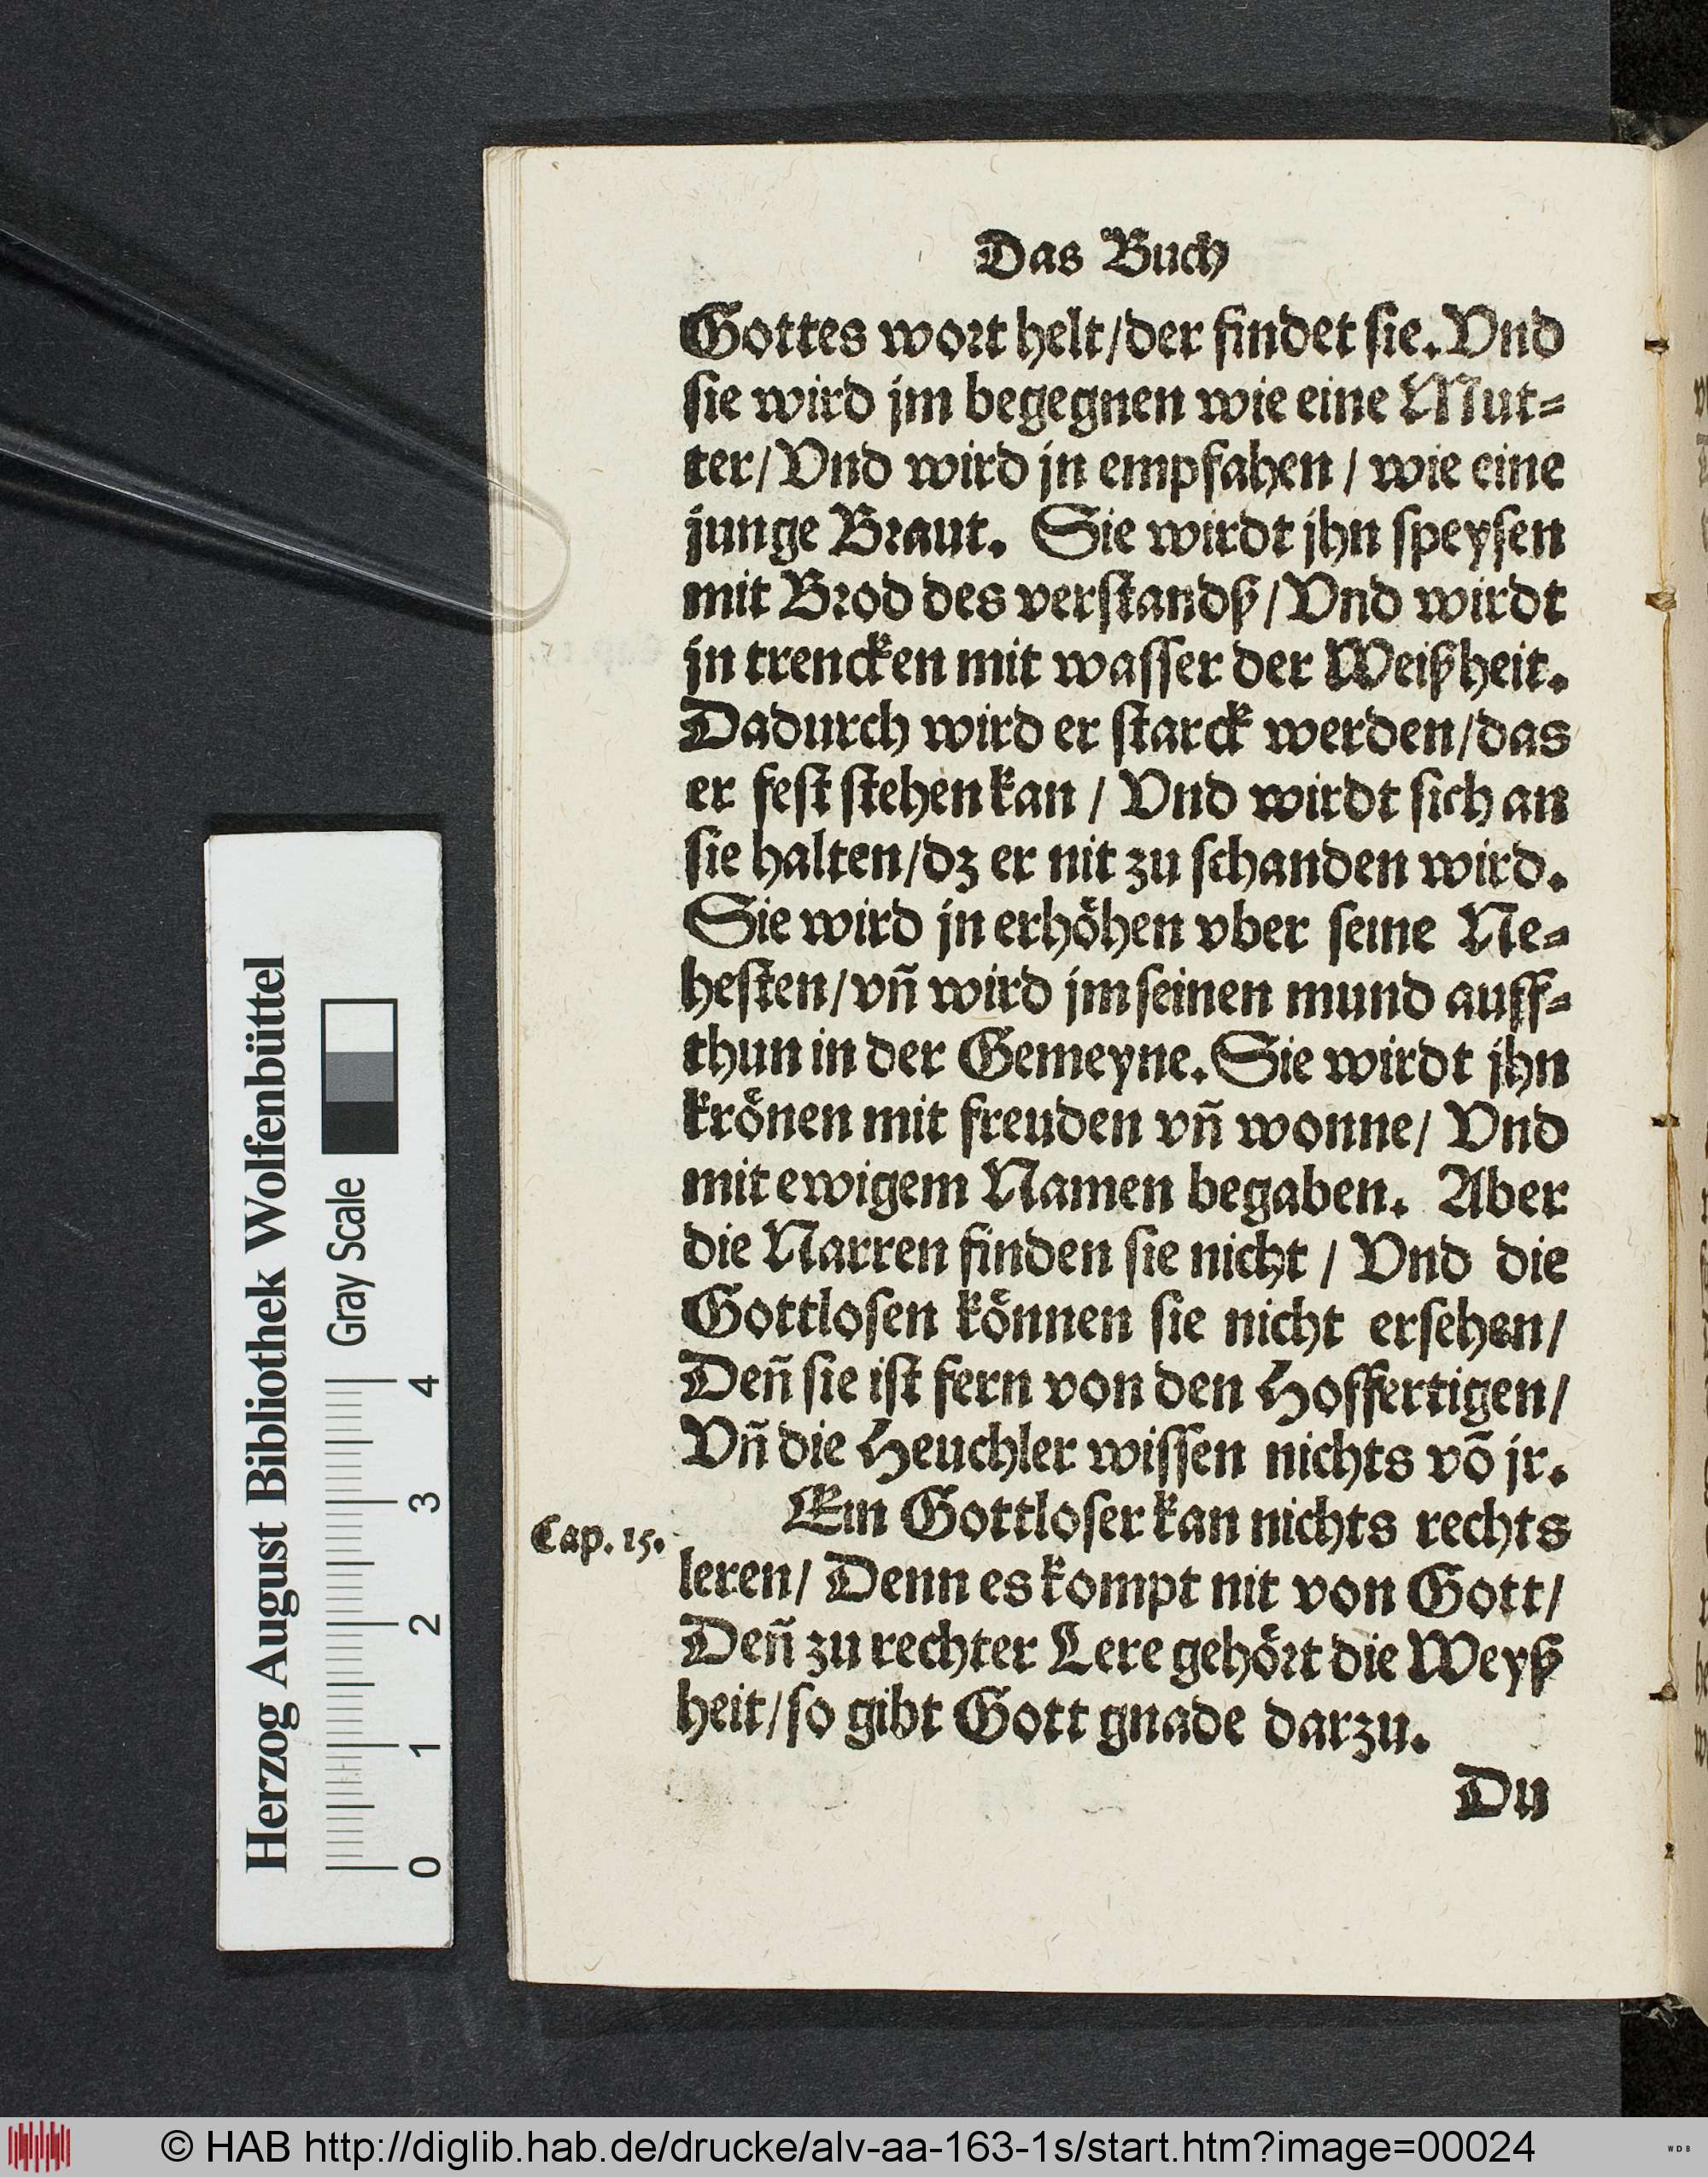 Das Buch
Gottes wort helt/der findet sie. Vnd
sie wird jm begegnen wie eine Mut=
ter/Vnd wird jn empfahen / wie eine
junge Braut. Sie wirdt jhn speysen
mit Brod des verstandß/Vnd wirdt
jn trencken mit wasser der Weißheit.
Dadurch wird er starck werden/das
er fest stehen kan / Vnd wirdt sich an
sie halten/dz er nit zu schanden wird.
Sie wird jn erhöhen vber seine Ne=
hesten/vñ wird jm seinen mund auff=
thun in der Gemeyne. Sie wirdt jhn
krönen mit freuden vñ wonne/ Vnd
mit ewigem Namen begaben. Aber
die Narren finden sie nicht / Vnd die
Gottlosen können sie nicht ersehen/
Deñ sie ist fern von den Hoffertigen/
Vñ die Heuchler wissen nichts võ jr.
Ein Gottloser kan nichts rechts
Cap. 15.
leren/ Denn es kompt nit von Gott/
Deñ zu rechter Lere gehört die Weyß
heit/so gibt Gott gnade darzu.
Du
Herzog August Bibliothek Wolfenbüttel
Gray Scale
0 1 2 3 4
© HAB http://diglib.hab.de/drucke/alv-aa-163-1s/start.htm?image=00024
WDB